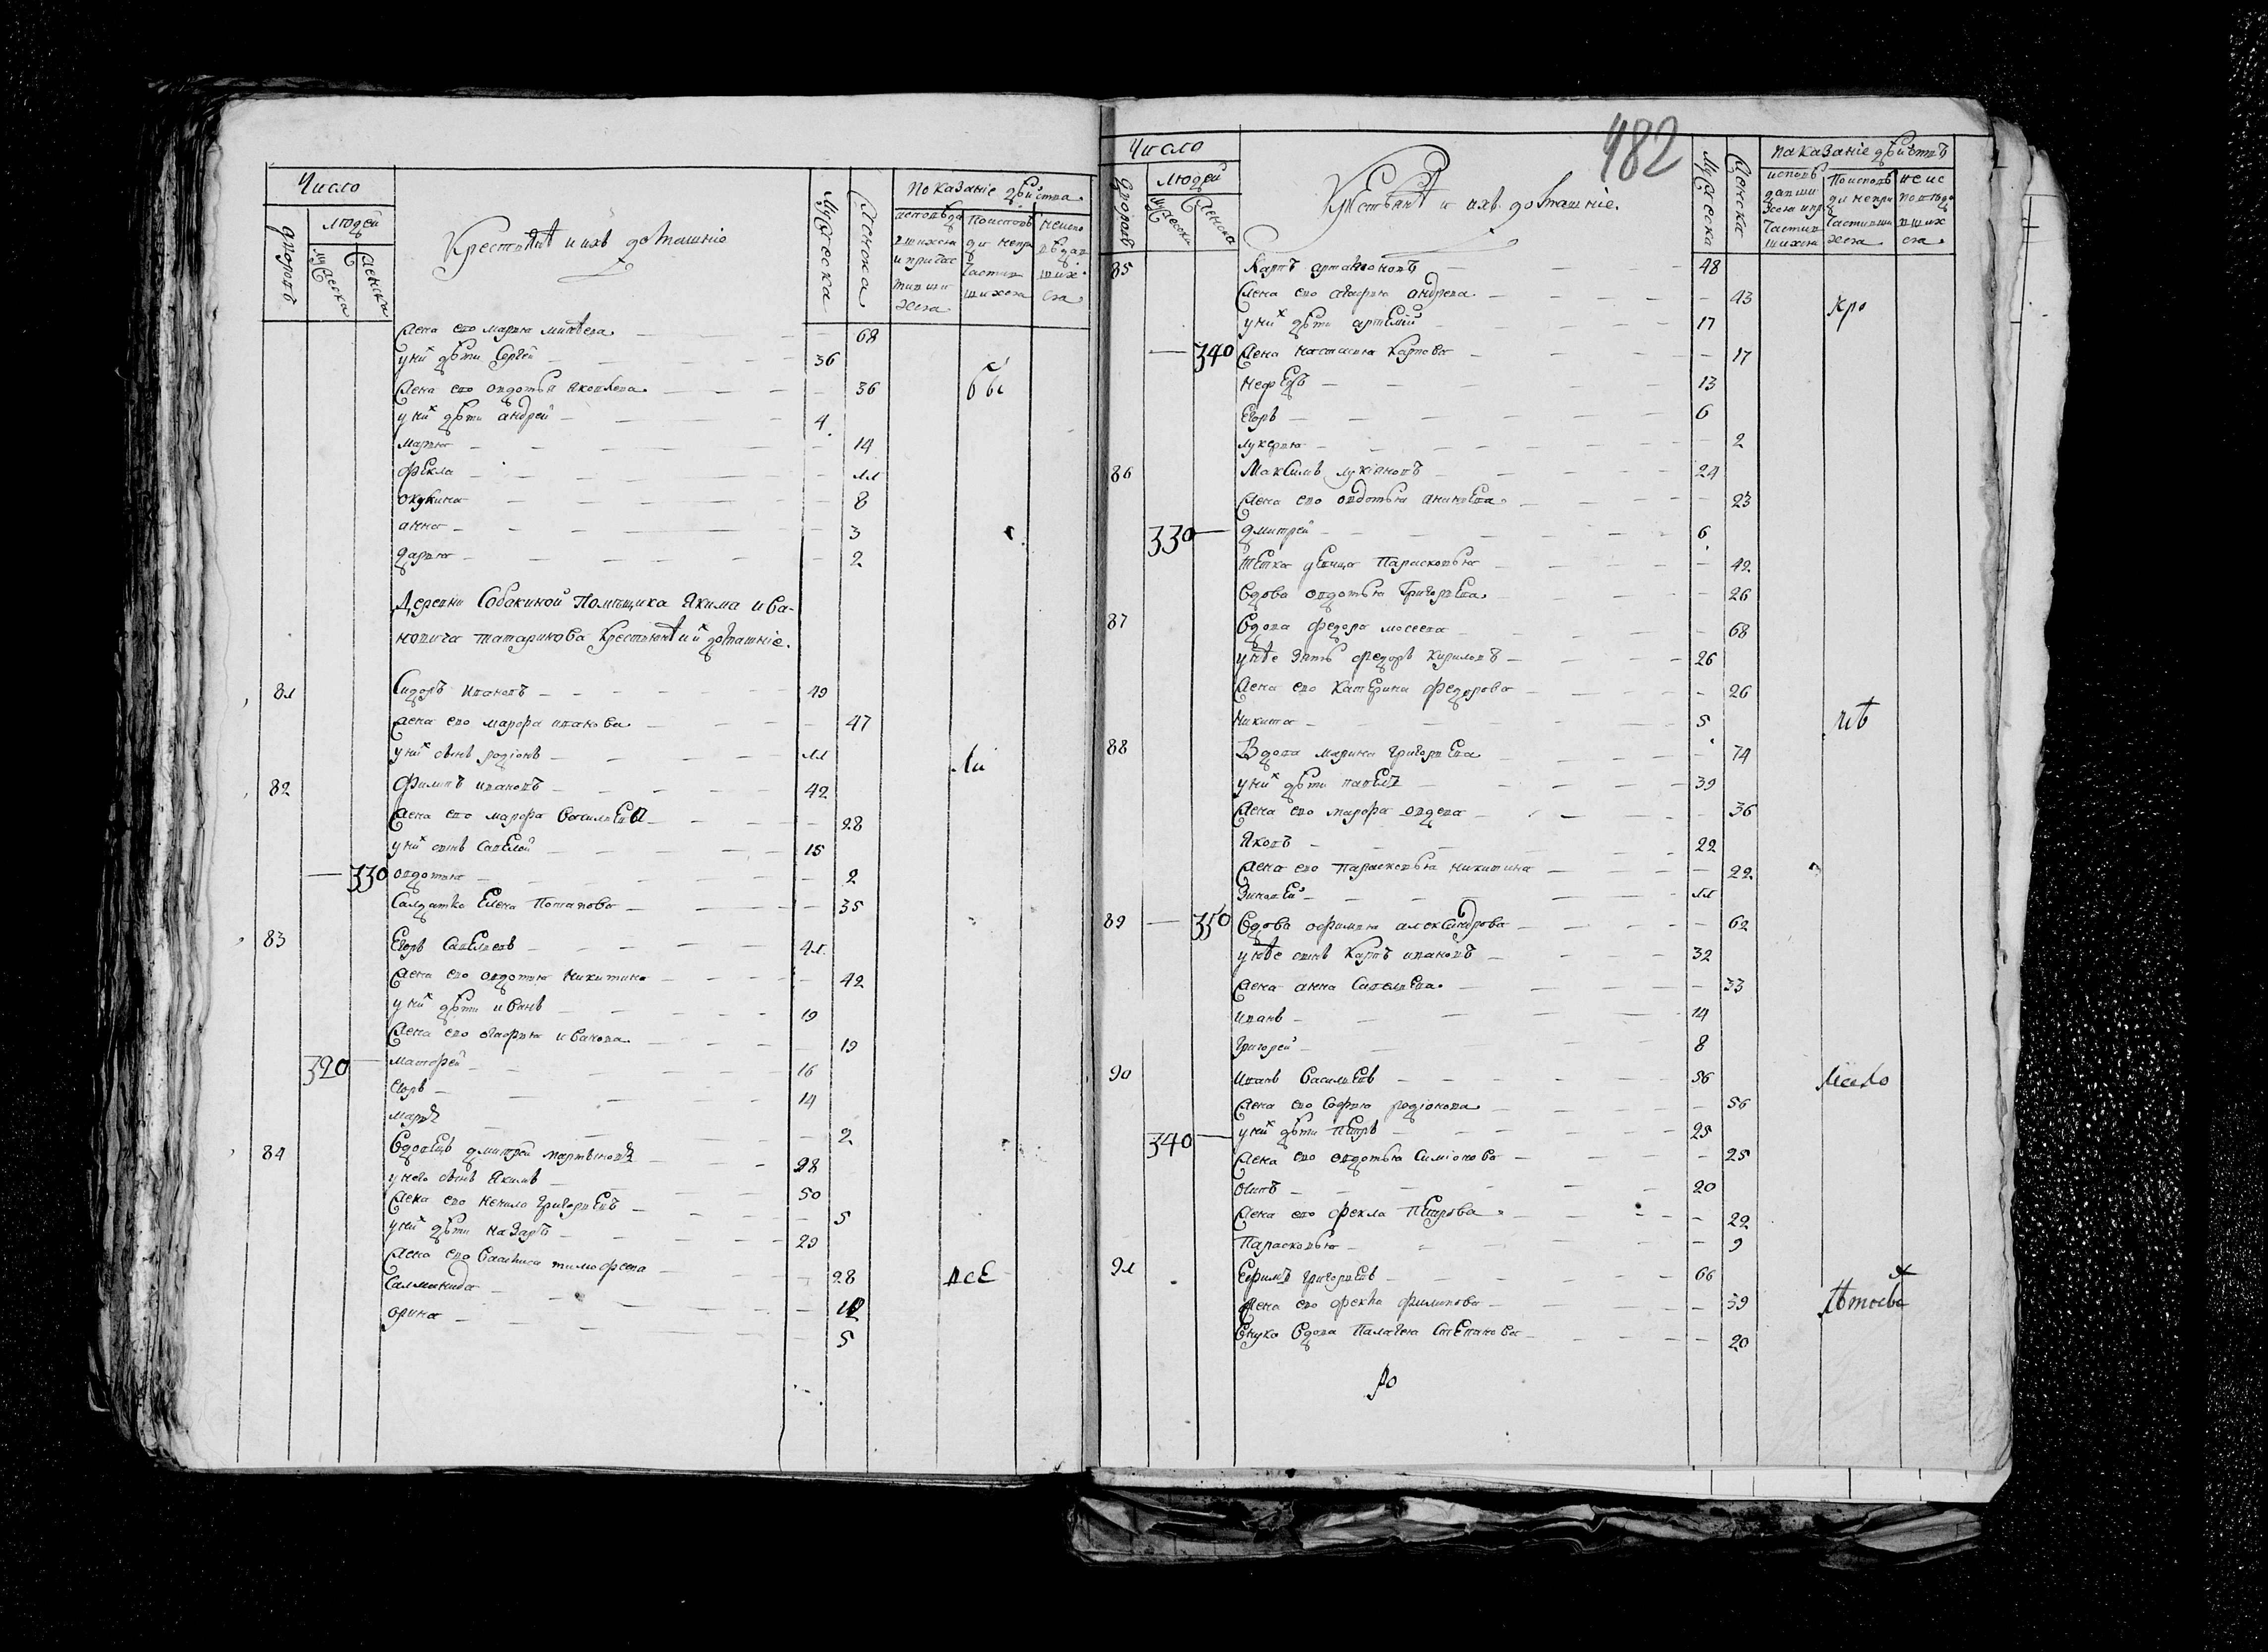 Число
людей
дворовъ
мужеска
женска
Крестьянѣ и ихъ домашніе
Мужеска
Женска
Показаніе дѣйства
исповѣдавшихся и причастившихся
По исповѣди непричастившихся
неисповѣдавшихся
Жена его марья матвева 68
у них дѣти Сергей 36
Жена его авдотья яковлева 36
у них дѣти андрей 4
марья 14
фекла 11
акулина 8
анна 3
дарья 2
бы
Деревни Собакиной Помѣщика Якима Ива-
новича татаринова Крестьянѣ и их домашніе.
81 Сидоръ ивановъ 49
жена его марфа иванова 47
у них сынъ родіонъ 11
ли
82 Филипъ ивановъ 42
Жена его марфа Васильева 28
у них сынъ Савелей 15
330 овдотья 2
Салдатка Елена Потапова 35
83 Егоръ Савельевъ 41
Жена его овдотья Никитина 42
у них дѣти иванъ 19
Жена его огафья иванова 19
320 матфей 16
Егоръ 14
марья 2
84 Вдовецъ дмитрей мартыновъ 28
у него сынъ Якимъ 50
Жена его Ненила григорьевъ 5
у них дѣти Назаръ 29
Жена его Василиса тимофеева 28
Саломанида 12
орина 5
все
482
Число
людей
дворовъ
мужеска
женска
Крестьянѣ и ихъ домашніе.
Мужеска
Женска
Показаніе дѣйствъ
исповѣдавшихся и причастившихся
По исповѣди непричастившихся
неисповѣдавшихся
85 Карпъ артамоновъ 48
Жена его агафья андрева 43
у них дѣти артемій 17
кро
340 Жена настасья Карпова 17
Нефедъ 13
Егоръ 6
лукерья 2
86 Максимъ лукіяновъ 24
Жена его овдотья ананьева 23
330 дмитрей 6
тетка девица Парасковья 42
Вдова овдотья Григорьева 26
87 Вдова федора мосеева 68
у нѣе зять федоръ Кириловъ 26
Жена его Катерина федорова 26
Никита 5
мѣ
88 Вдова марина григорьева 74
у них дѣти павелъ 39
Жена его марфа овдева 36
Яковъ 22
Жена его Парасковья никитина 22
Зиновей 11
89 350 Вдова офимья александрова 62
у нѣе сынъ Карпъ ивановъ 32
Жена анна Савельева 33
иванъ 14
григорей 8
90 иванъ Васильевъ 56
Жена его Софья родіонова 56
340 у них дѣти Петръ 25
Жена его овдотья Симіонова 25
осипъ 20
Жена его фекла Петрова 22
Парасковья 9
91 Ефимъ григорьевъ 66
Жена его фекла филипова 39
Внука Вдова Палагея Степанова 20